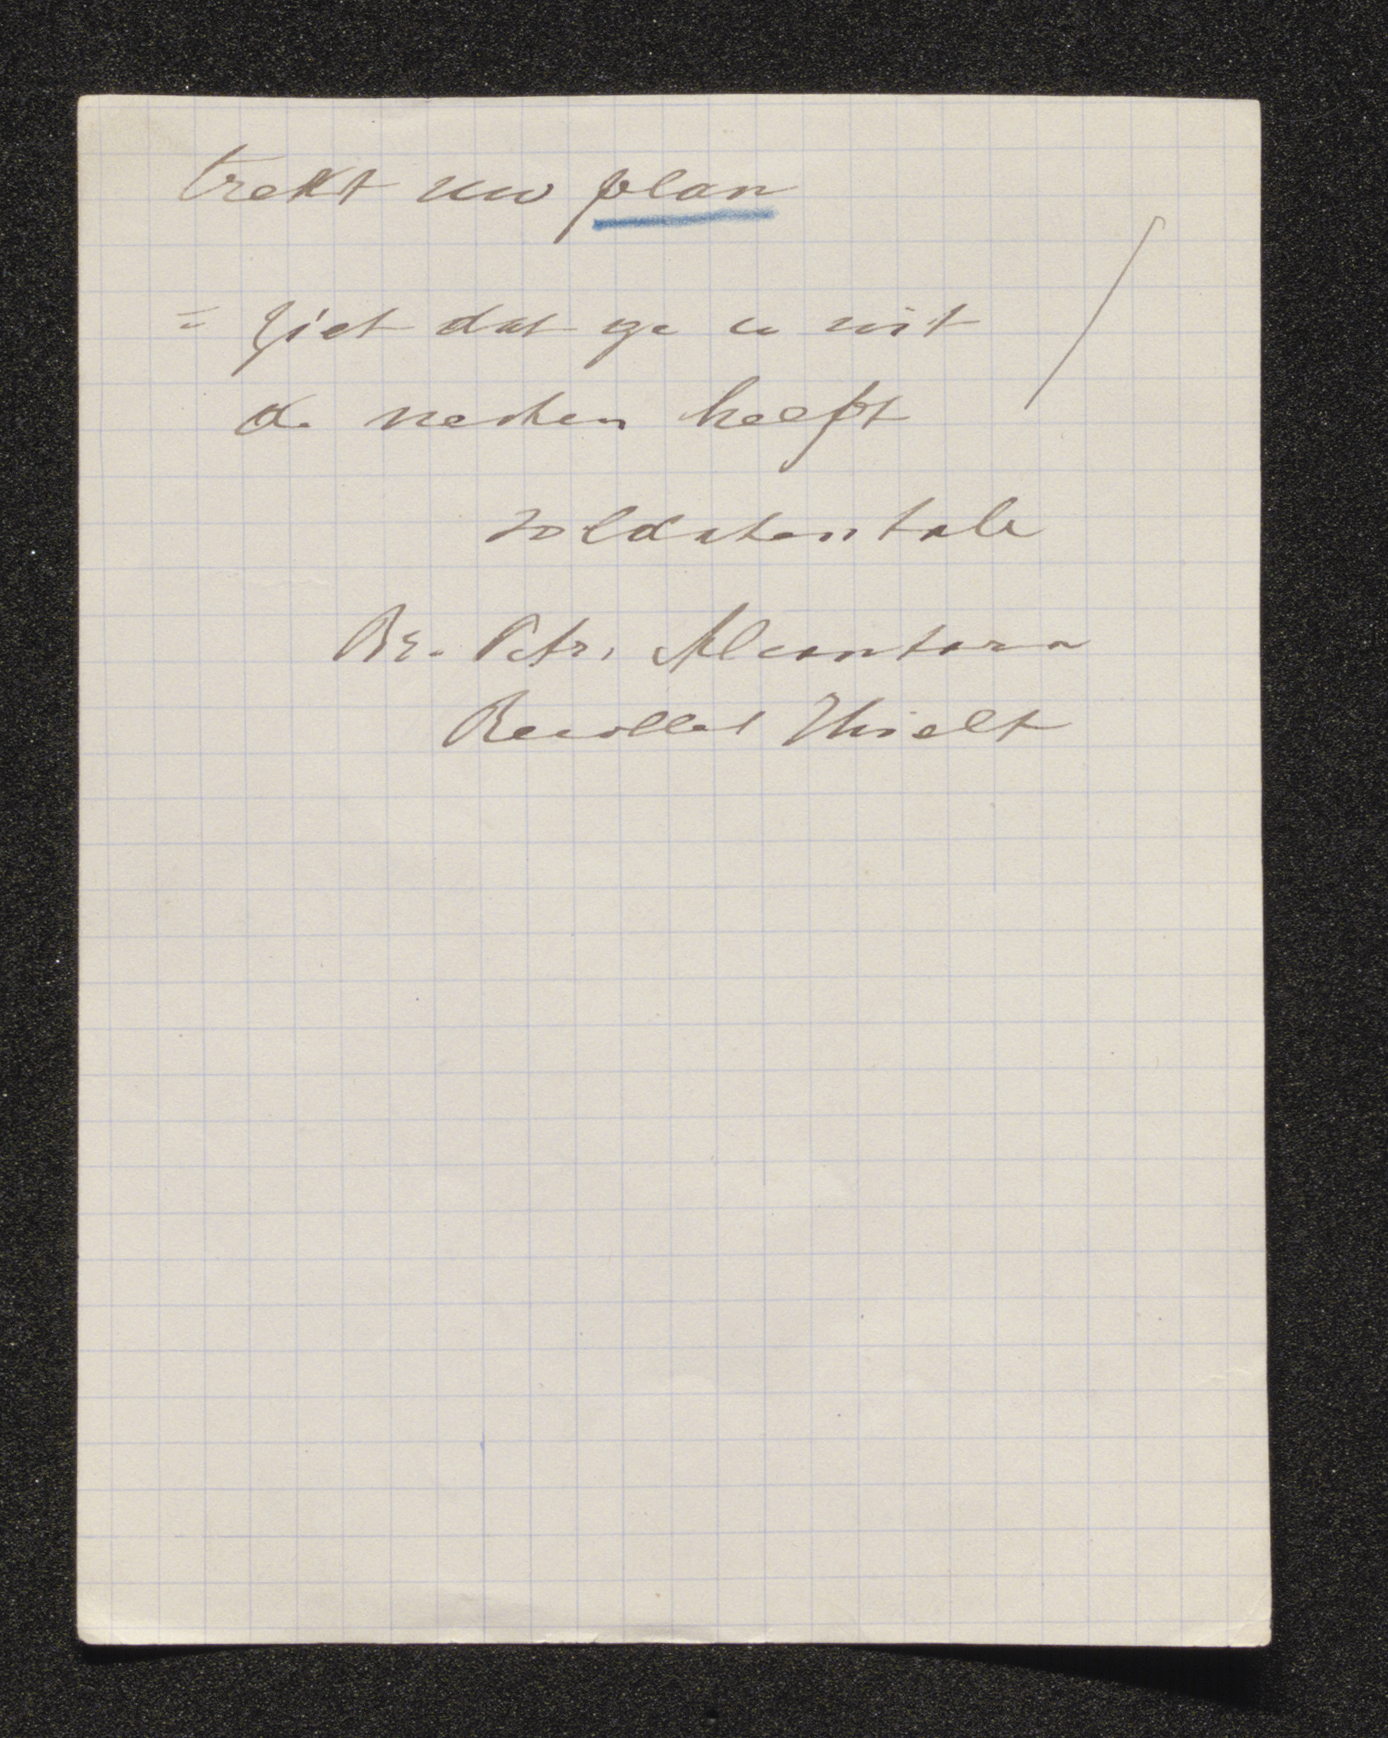 trekt uw plan
= ziet dat ge u uit
de nesten heeft
soldatentale
Br. Petr. Alcantara
Recollet Thielt